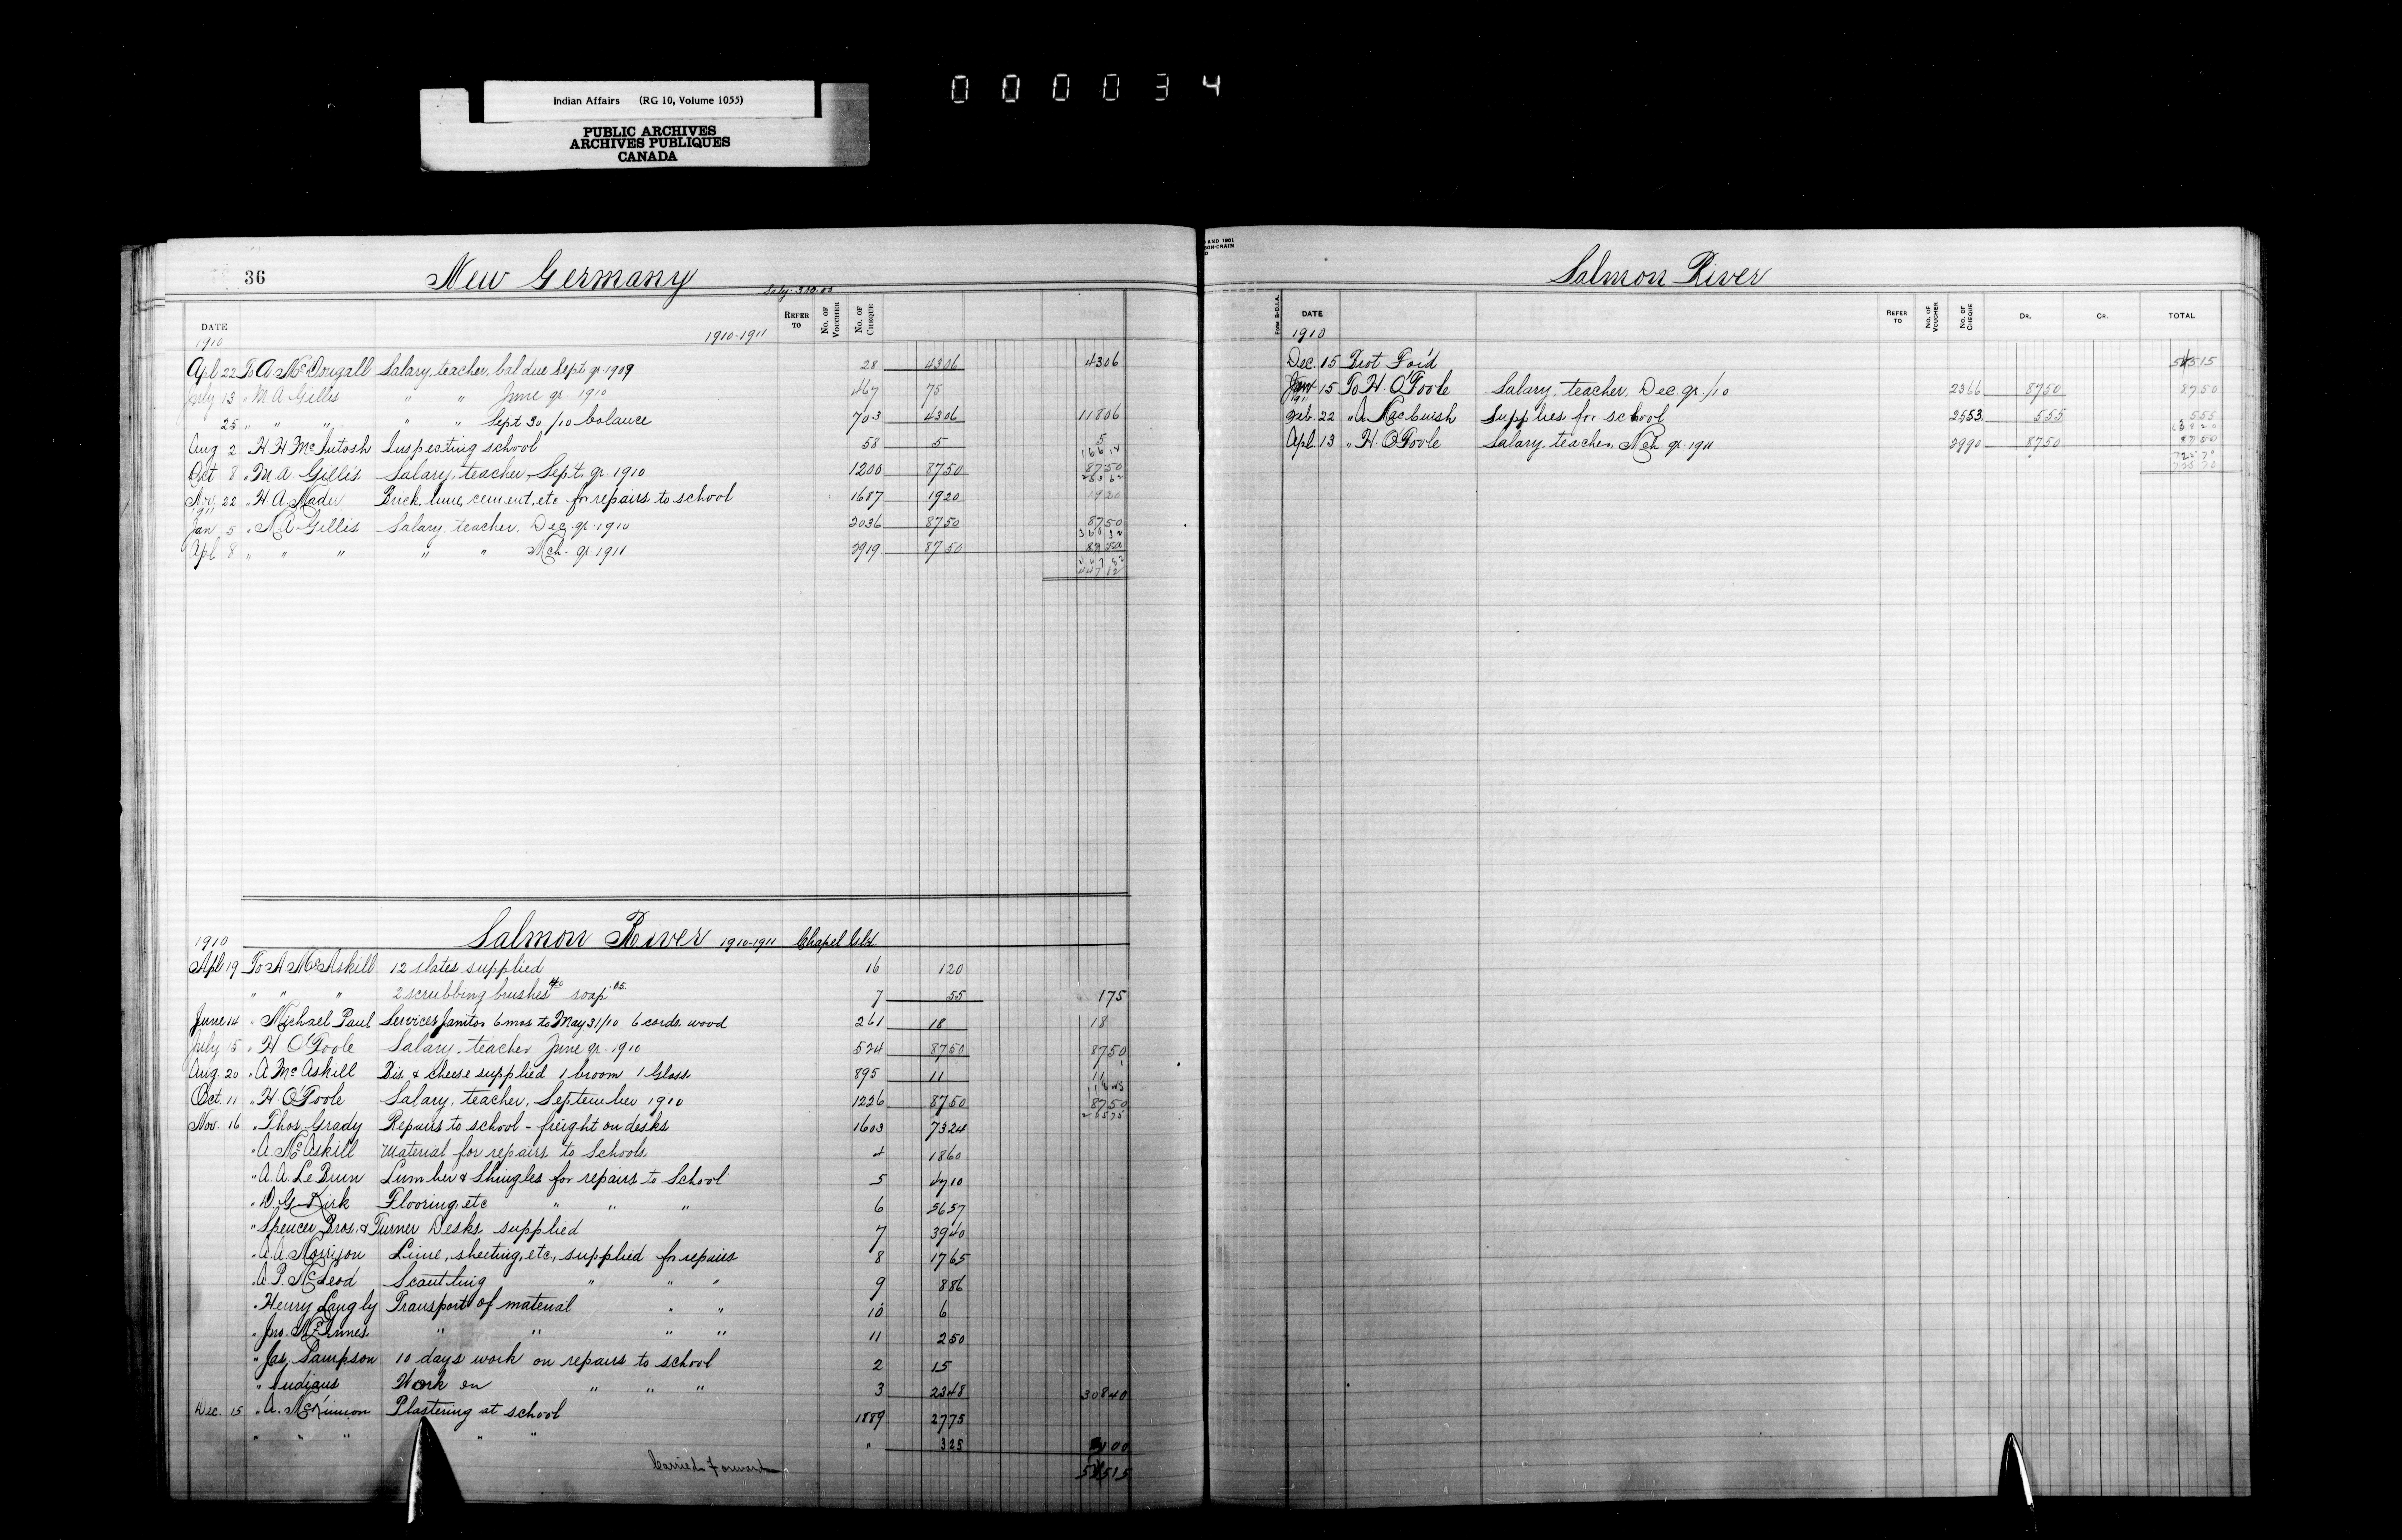 Indian Affairs (RG 10, Volume 1055)
PUBLIC ARCHIVES
ARCHIVES PUBLIQUES
CANADA
000034
36 New Germany
DATE 1910-1911 REFER TO No. OF VOUCHER No. OF CHEQUE
1910
Apl 22 To A McDougall Salary, teacher, bal due Sept qr. 1909 28 4306 4306
July 13 " M A Gillis " " June qr. 1910 467 75
25 " " " " " Sept 30/10 balance 703 4306 11806
Aug 2 " H H McIntosh Inspecting school 58 5 5
Oct 8 " M A Gillis Salary, teacher, Sept. qr. 1910 1200 8750 8750
Nov. 22 " H A Mader Brick, lime, cement, etc for repairs to school 1687 1920 1920
1911
Jan 5 " M A Gillis Salary, teacher, Dec. qr. 1910 2036 8750 8750
Apl 8 " " " " " Mch. qr. 1911 2919 8750 8750
44782
Salmon River 1910-1911 Chapel Isld.
1910
Apl 19 To A McAskill 12 slates supplied 16 120
" " " 2 scrubbing brushes soap .05 7 55 175
June 14 " Michael Paul Services Janitor 6 mos to May 31/10 6 cords wood 261 18 18
July 15 " H O'Toole Salary, teacher June qr. 1910 524 8750 8750
Aug. 20 " A McAskill Bis. & cheese supplied 1 broom 1 Glass 895 11 11
Oct. 11 " H O'Toole Salary, teacher, September 1910 1226 8750 8750
Nov. 16 " Thos Grady Repairs to school - freight on desks 1603 7324
" A. McAskill Material for repairs to Schools 4 1860
" A. A. Le Brun Lumber & Shingles for repairs to School 5 4710
" D G Kirk Flooring, etc " " " 6 5657
" Spencer Bros. & Turner Desks supplied 7 3940
" A. A. Morrison Lime, sheeting, etc, supplied for repairs 8 1765
" A. P. McLeod Scantling " " " 9 886
" Henry Langly Transport of material " " 10 6
" Jno. McInnes " " " " 11 250
" Jas. Sampson 10 days work on repairs to school 2 15
" Indians Work on " " " 3 2348 30840
Dec. 15 " A. McKinnon Plastering at school 1889 2775
" " " " " " 325 3100
Carried forward 54515
Salmon River
FORM B-D.I.A. DATE REFER TO No. OF VOUCHER No. OF CHEQUE DR. CR. TOTAL
1910
Dec. 15 Brot For'd 54515
Jan 15 To H. O'Toole Salary, teacher, Dec. qr. /10 2366 8750 8750
1911
Feb. 22 " A MacCuish Supplies for school 2553 555 555
Apl. 13 " H. O'Toole Salary, teacher, Mch. qr. 1911 2990 8750 8750
72570
72570